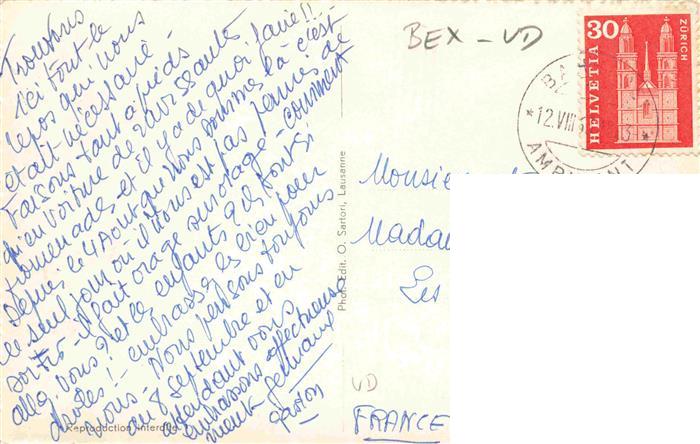 Trouvons
ici tout le
repos qui nous
était nécessaire -
Faisons tant à pieds
qu'en voiture de ravissante
promenades, et il y a de quoi faire!! -
Depuis le 4 Août que nous sommes là c'est
le seul jour où il nous est pas permis de
sortir - il fait orage sur orage - comment
allez vous? et les enfants? ils sont si
drôles! - embrassez les bien pour
nous - Nous pensons toujours
au 8 septembre et en
attendant vous
embrassons affectueuse
ment. Germaine
Gaston
BEX - VD
30
HELVETIA
ZÜRICH
12.VIII
Monsieur
Mada
Les
VD
FRANCE
Phot. Edit. O. Sartori, Lausanne
Reproduction interdite